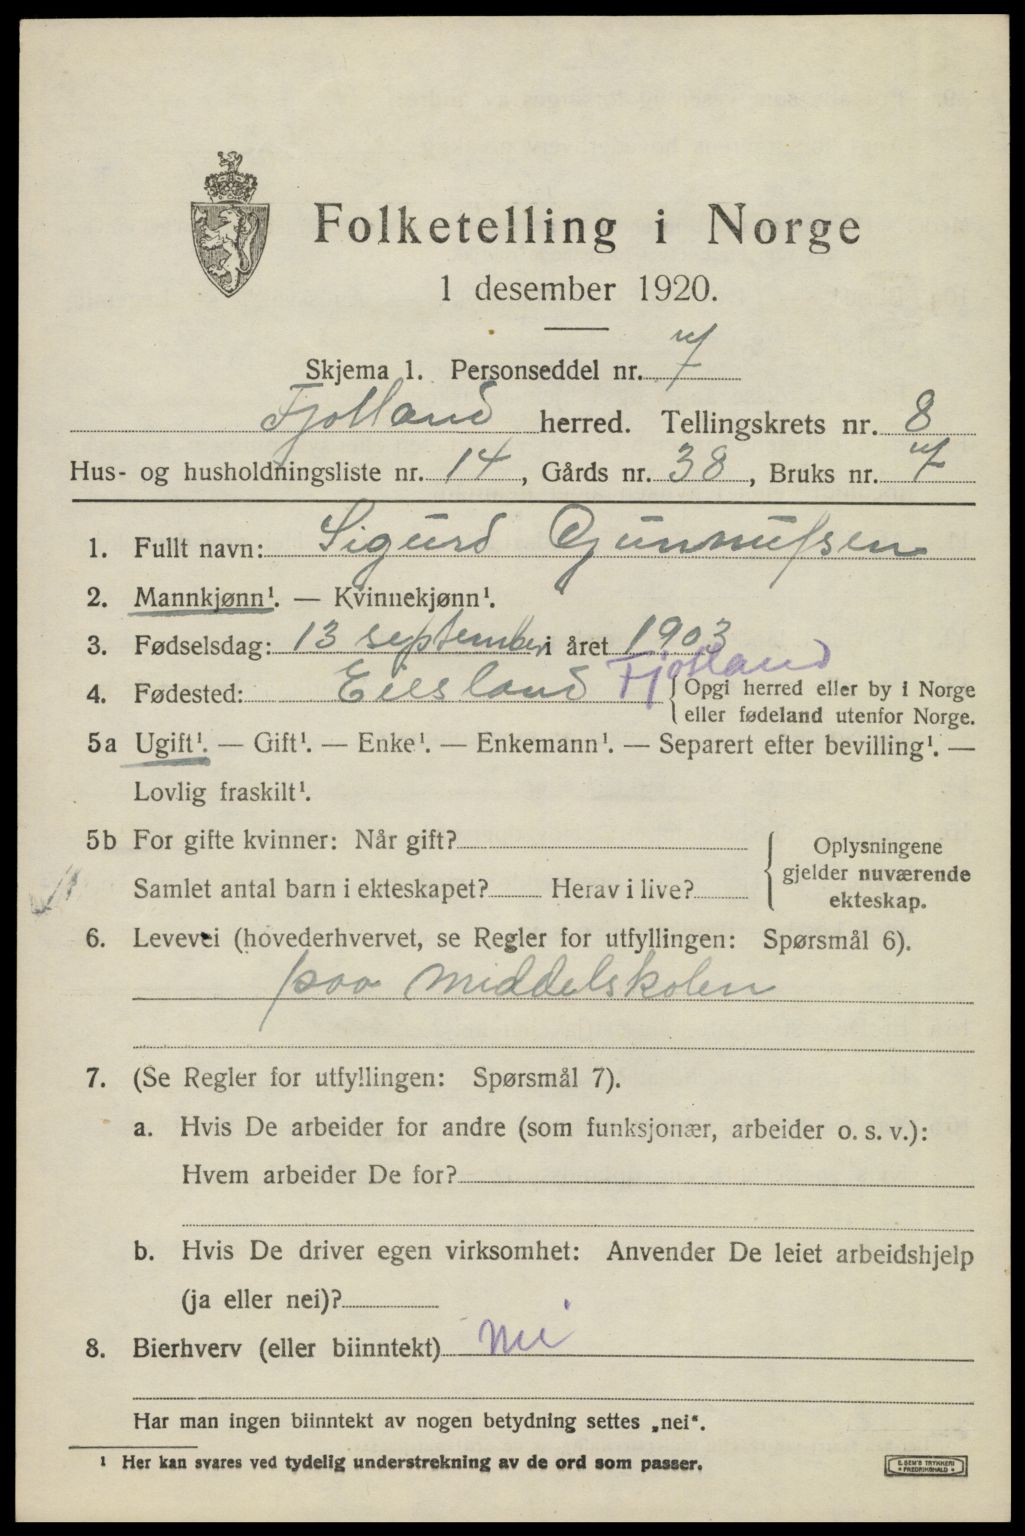 Folketelling i Norge
1 desember 1920.
Skjema 1. Personseddel nr. 7
Fjotland herred. Tellingskrets nr. 8
Hus- og husholdningsliste nr. 14, Gårds nr. 38, Bruks nr. 7
1. Fullt navn: Sigurd Gunnufsen
2. Mannkjønn¹. — Kvinnekjønn¹.
3. Fødselsdag: 13 september i året 1903
4. Fødested: Eiesland Fjotland { Opgi herred eller by i Norge
eller fødeland utenfor Norge.
5a Ugift¹. — Gift¹. — Enke¹. — Enkemann¹. — Separert efter bevilling¹. —
Lovlig fraskilt¹.
5b For gifte kvinner: Når gift?
Samlet antal barn i ekteskapet? Herav i live?
Oplysningene
gjelder nuværende
ekteskap.
6. Levevei (hovederhvervet, se Regler for utfyllingen: Spørsmål 6).
paa middelskolen
7. (Se Regler for utfyllingen: Spørsmål 7).
a. Hvis De arbeider for andre (som funksjonær, arbeider o. s. v.):
Hvem arbeider De for?
b. Hvis De driver egen virksomhet: Anvender De leiet arbeidshjelp
(ja eller nei)?
8. Bierhverv (eller biinntekt) nei
Har man ingen biinntekt av nogen betydning settes „nei“.
¹ Her kan svares ved tydelig understrekning av de ord som passer.
E. SEM'S TRYKKERI
* FREDRIKSHALD *